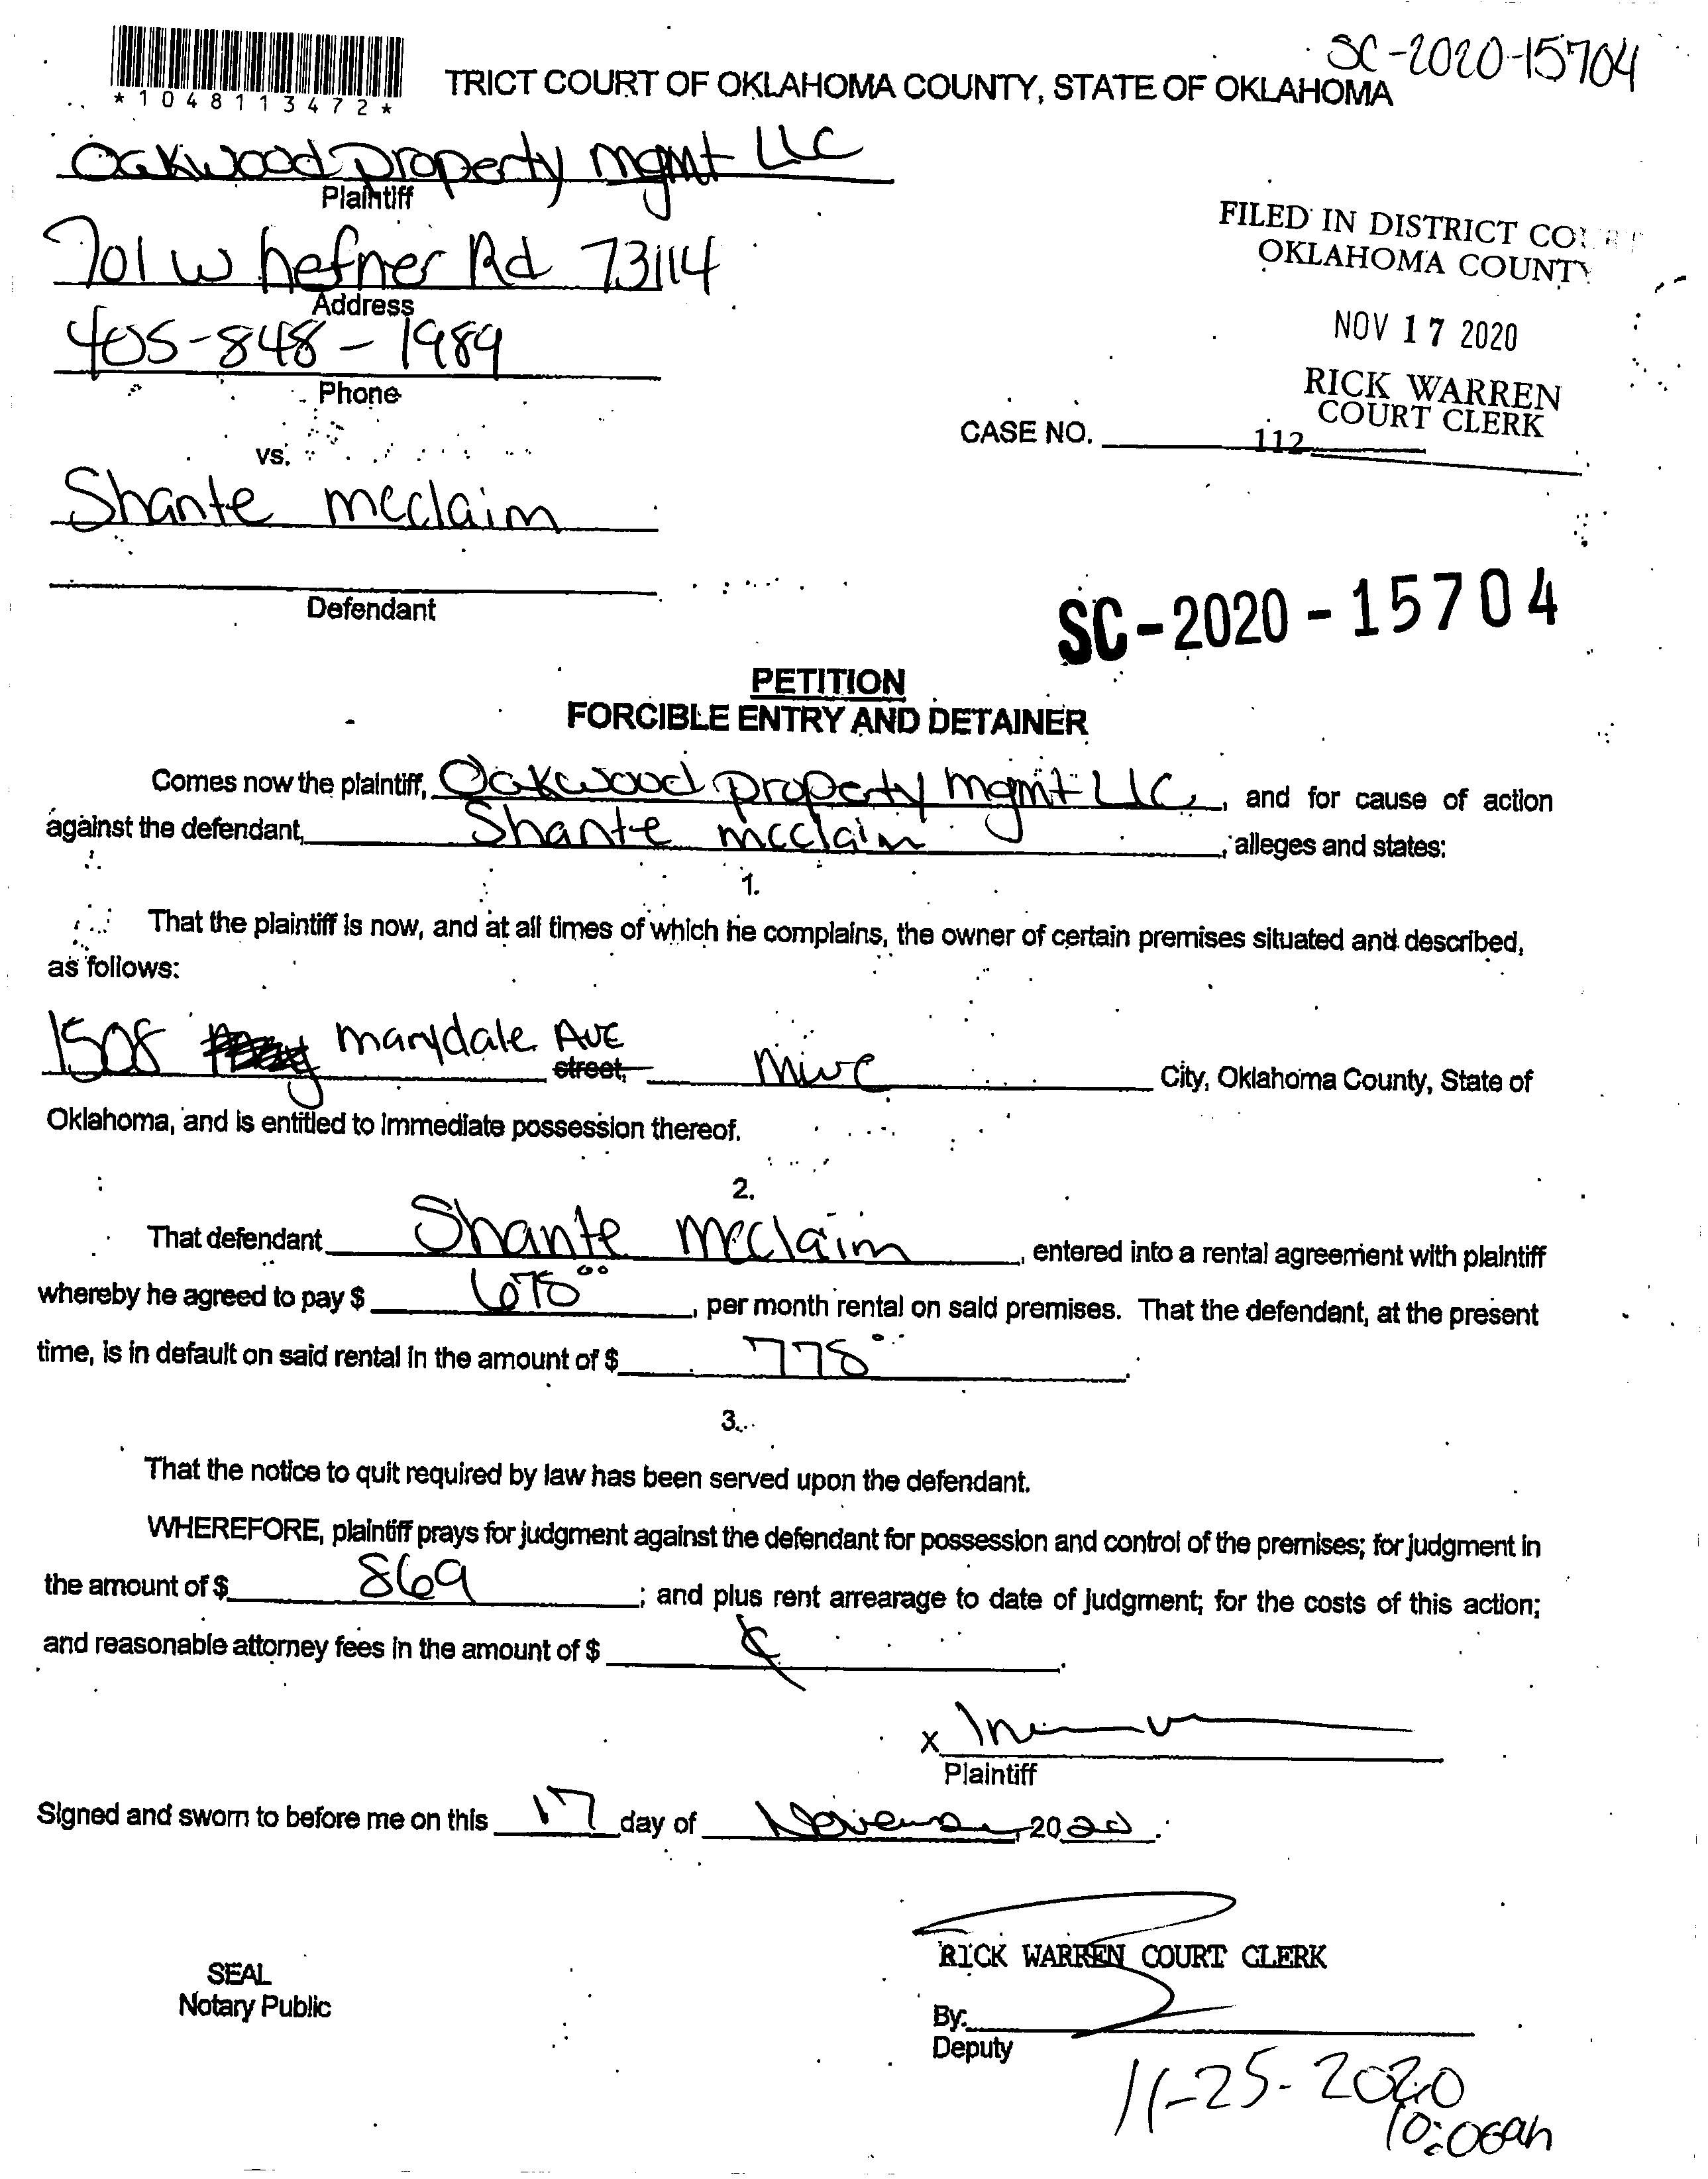 SC-2020-15704
*1048113472*
TRICT COURT OF OKLAHOMA COUNTY, STATE OF OKLAHOMA
Oakwood Property mgmt LLC
Plaintiff
701 W hefner Rd 73114
Address
405-848-1989
Phone
FILED IN DISTRICT COURT
OKLAHOMA COUNTY
NOV 17 2020
RICK WARREN
COURT CLERK
CASE NO.
112
vs.
Shante mcclaim
Defendant
SC-2020-15704
PETITION
FORCIBLE ENTRY AND DETAINER
Comes now the plaintiff, Oakwood property mgmt LLC, and for cause of action
against the defendant, Shante mcclain, alleges and states:
1.
That the plaintiff is now, and at all times of which he complains, the owner of certain premises situated and described,
as follows:
1508 marydale Ave street, MWC City, Oklahoma County, State of
Oklahoma, and is entitled to immediate possession thereof.
2.
That defendant Shante mcclaim, entered into a rental agreement with plaintiff
whereby he agreed to pay $ , per month rental on said premises. That the defendant, at the present
time, is in default on said rental in the amount of $ .
3.
That the notice to quit required by law has been served upon the defendant.
WHEREFORE, plaintiff prays for judgment against the defendant for possession and control of the premises; for judgment in
the amount of $ 869 ; and plus rent arrearage to date of judgment; for the costs of this action;
and reasonable attorney fees in the amount of $ .
x
Plaintiff
Signed and sworn to before me on this 17 day of November, 2020.
SEAL
Notary Public
RICK WARREN COURT CLERK
By:
Deputy
11-25-2020
10:00am